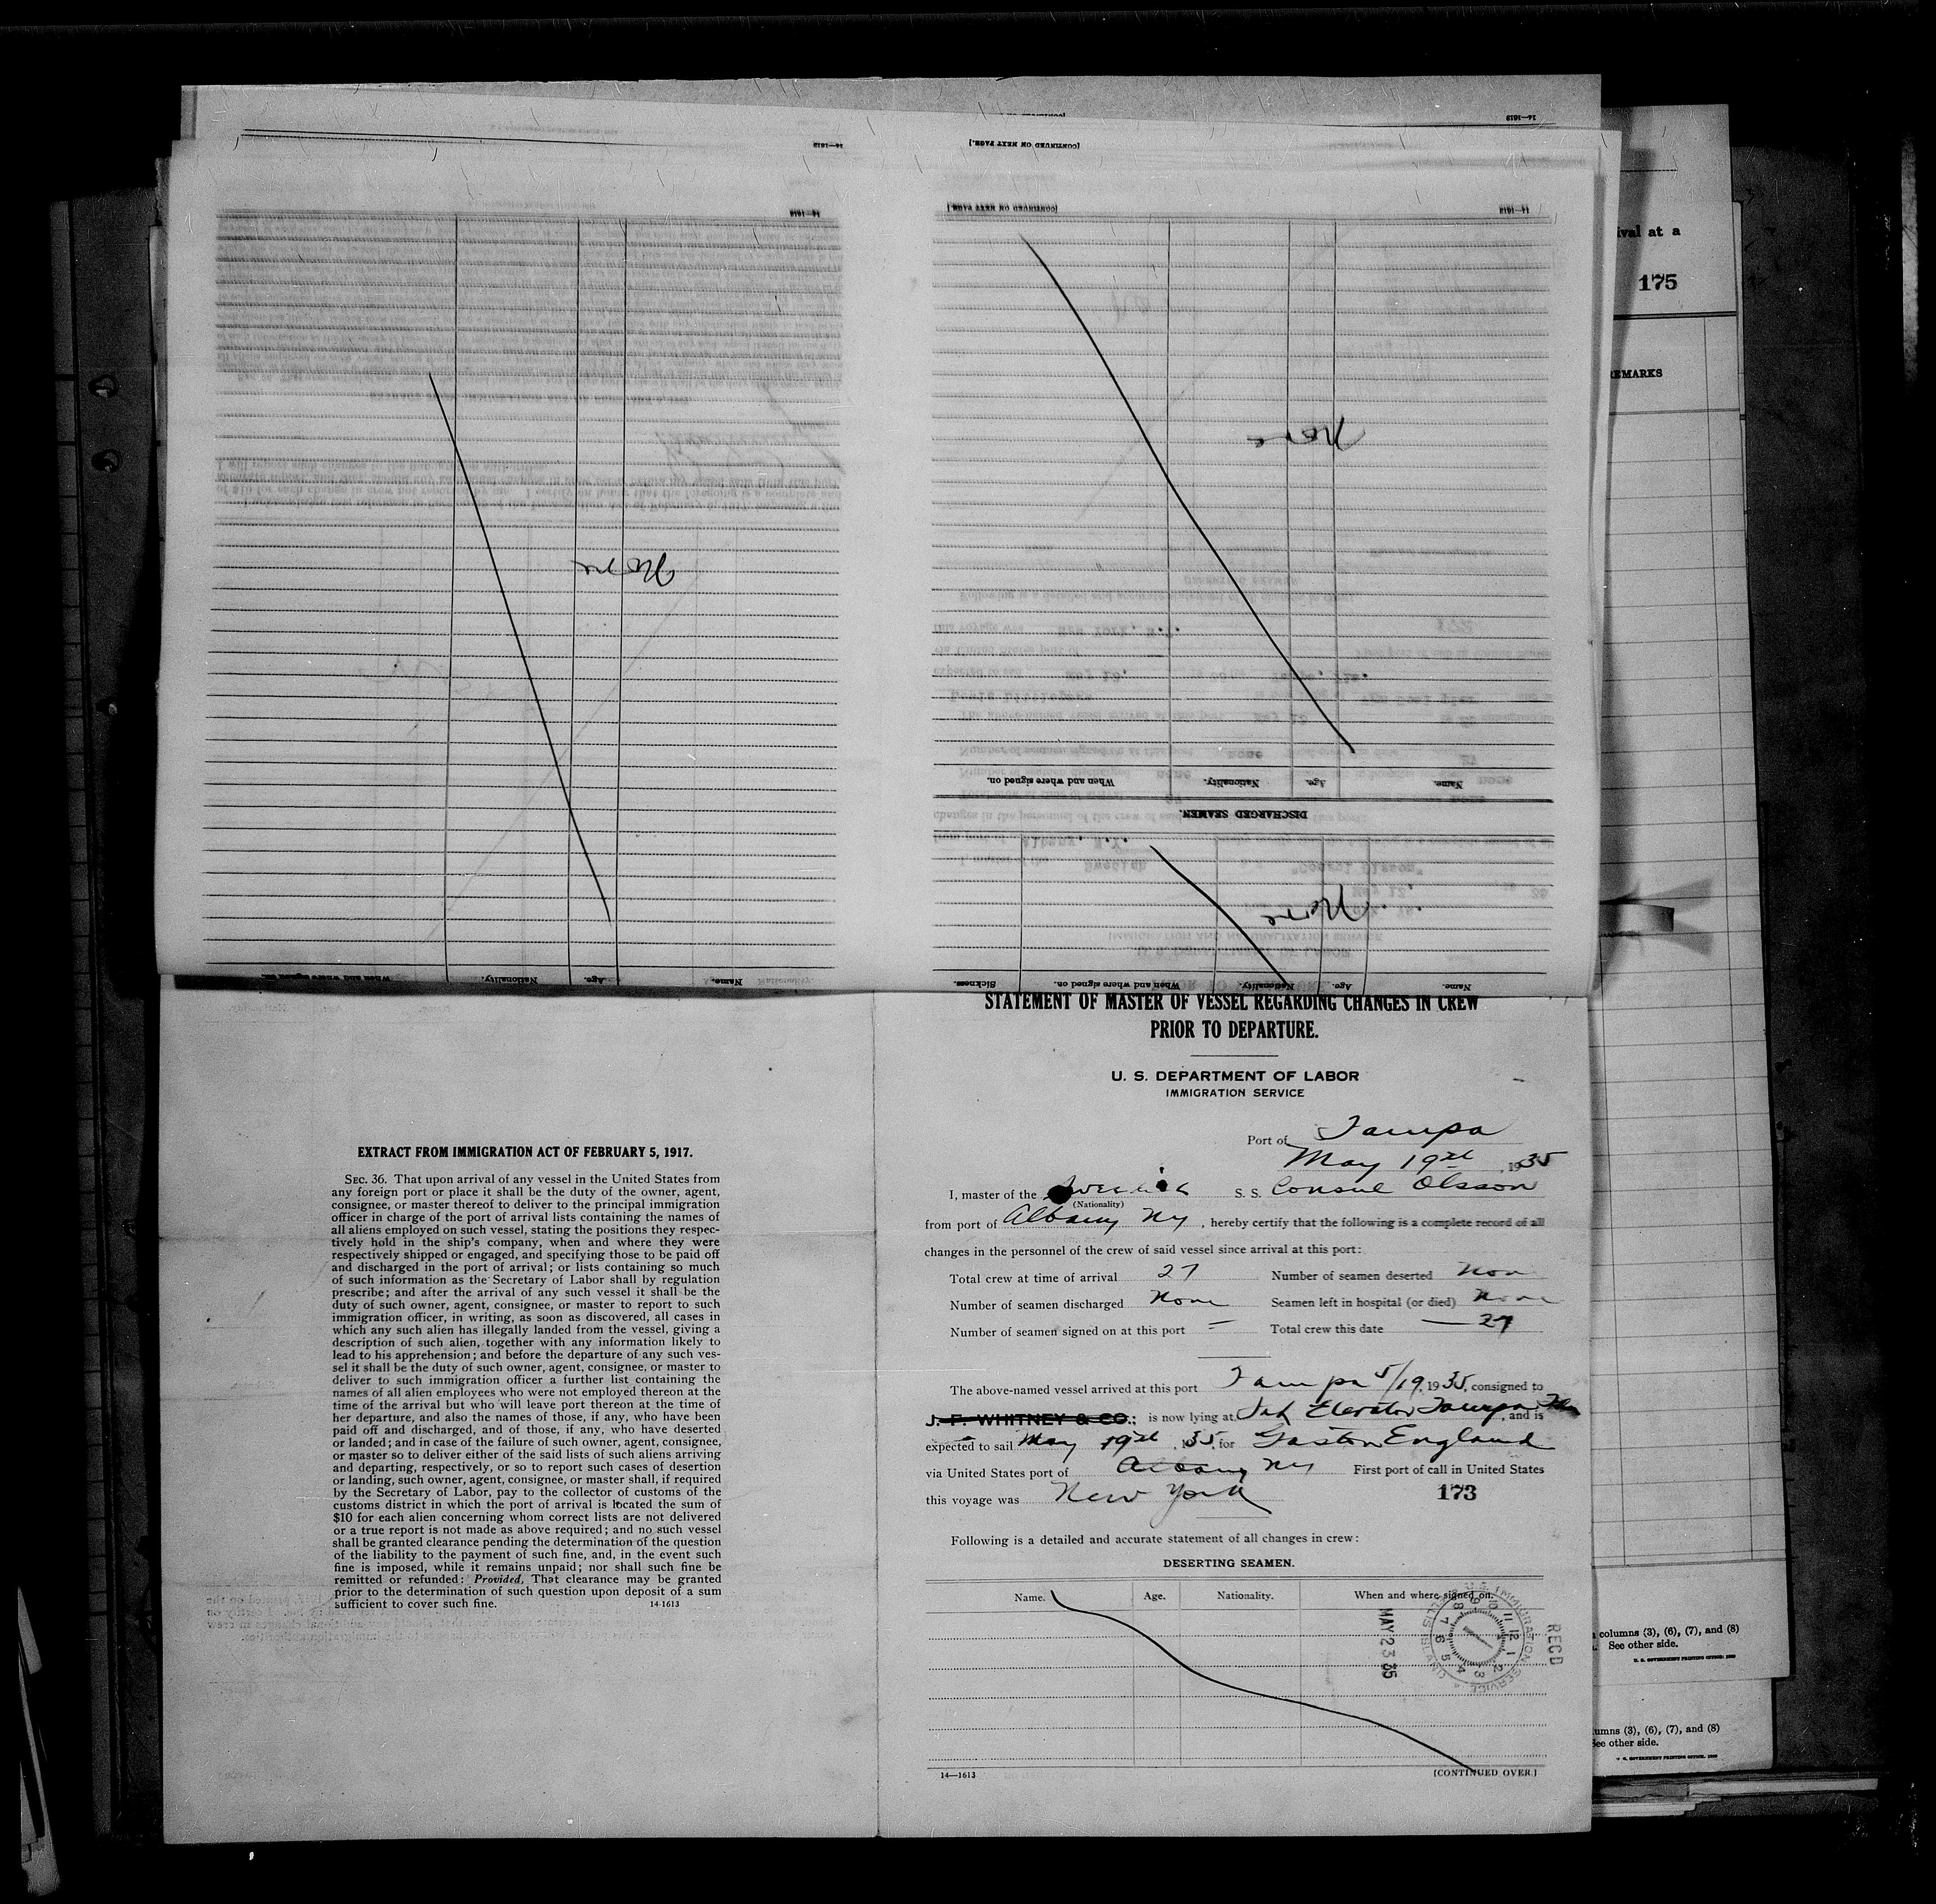 14—1613
[CONTINUED ON NEXT PAGE.]
14—1613
[CONTINUED ON NEXT PAGE.]
14—1613
14—1613
None
None
When and where signed on. Nationality. Age. Name.
DISCHARGED SEAMEN.
None
Sickness. When and where signed on. Nationality. Age. Name.
When and where signed on. Nationality. Age. Name.
ival at a
175
REMARKS
STATEMENT OF MASTER OF VESSEL REGARDING CHANGES IN CREW
PRIOR TO DEPARTURE.
U. S. DEPARTMENT OF LABOR
IMMIGRATION SERVICE
Port of Tampa
May 19th, 1935
I, master of the Swedish S. S. Consul Olsson
(Nationality)
from port of Albany NY, hereby certify that the following is a complete record of all
changes in the personnel of the crew of said vessel since arrival at this port:
Total crew at time of arrival 27 Number of seamen deserted Non
Number of seamen discharged None Seamen left in hospital (or died) None
Number of seamen signed on at this port — Total crew this date — 27
The above-named vessel arrived at this port Tampa 5/19, 1935, consigned to
J. F. WHITNEY & CO.; is now lying at Elevator Tampa Fla, and is
expected to sail May 19th, 1935, for Garston England
via United States port of Albany NY First port of call in United States
this voyage was New York 173
Following is a detailed and accurate statement of all changes in crew:
DESERTING SEAMEN.
Name. Age. Nationality. When and where signed on.
U. S. IMMIGRATION SERVICE
MAY 23 35
REC'D
14—1613 [CONTINUED OVER.]
EXTRACT FROM IMMIGRATION ACT OF FEBRUARY 5, 1917.
SEC. 36. That upon arrival of any vessel in the United States from
any foreign port or place it shall be the duty of the owner, agent,
consignee, or master thereof to deliver to the principal immigration
officer in charge of the port of arrival lists containing the names of
all aliens employed on such vessel, stating the positions they respec-
tively hold in the ship's company, when and where they were
respectively shipped or engaged, and specifying those to be paid off
and discharged in the port of arrival; or lists containing so much
of such information as the Secretary of Labor shall by regulation
prescribe; and after the arrival of any such vessel it shall be the
duty of such owner, agent, consignee, or master to report to such
immigration officer, in writing, as soon as discovered, all cases in
which any such alien has illegally landed from the vessel, giving a
description of such alien, together with any information likely to
lead to his apprehension; and before the departure of any such ves-
sel it shall be the duty of such owner, agent, consignee, or master to
deliver to such immigration officer a further list containing the
names of all alien employees who were not employed thereon at the
time of the arrival but who will leave port thereon at the time of
her departure, and also the names of those, if any, who have been
paid off and discharged, and of those, if any, who have deserted
or landed; and in case of the failure of such owner, agent, consignee,
or master so to deliver either of the said lists of such aliens arriving
and departing, respectively, or so to report such cases of desertion
or landing, such owner, agent, consignee, or master shall, if required
by the Secretary of Labor, pay to the collector of customs of the
customs district in which the port of arrival is located the sum of
$10 for each alien concerning whom correct lists are not delivered
or a true report is not made as above required; and no such vessel
shall be granted clearance pending the determination of the question
of the liability to the payment of such fine, and, in the event such
fine is imposed, while it remains unpaid; nor shall such fine be
remitted or refunded: Provided, That clearance may be granted
prior to the determination of such question upon deposit of a sum
sufficient to cover such fine. 14-1613
columns (3), (6), (7), and (8)
See other side.
U. S. GOVERNMENT PRINTING OFFICE
umns (3), (6), (7), and (8)
See other side.
U. S. GOVERNMENT PRINTING OFFICE